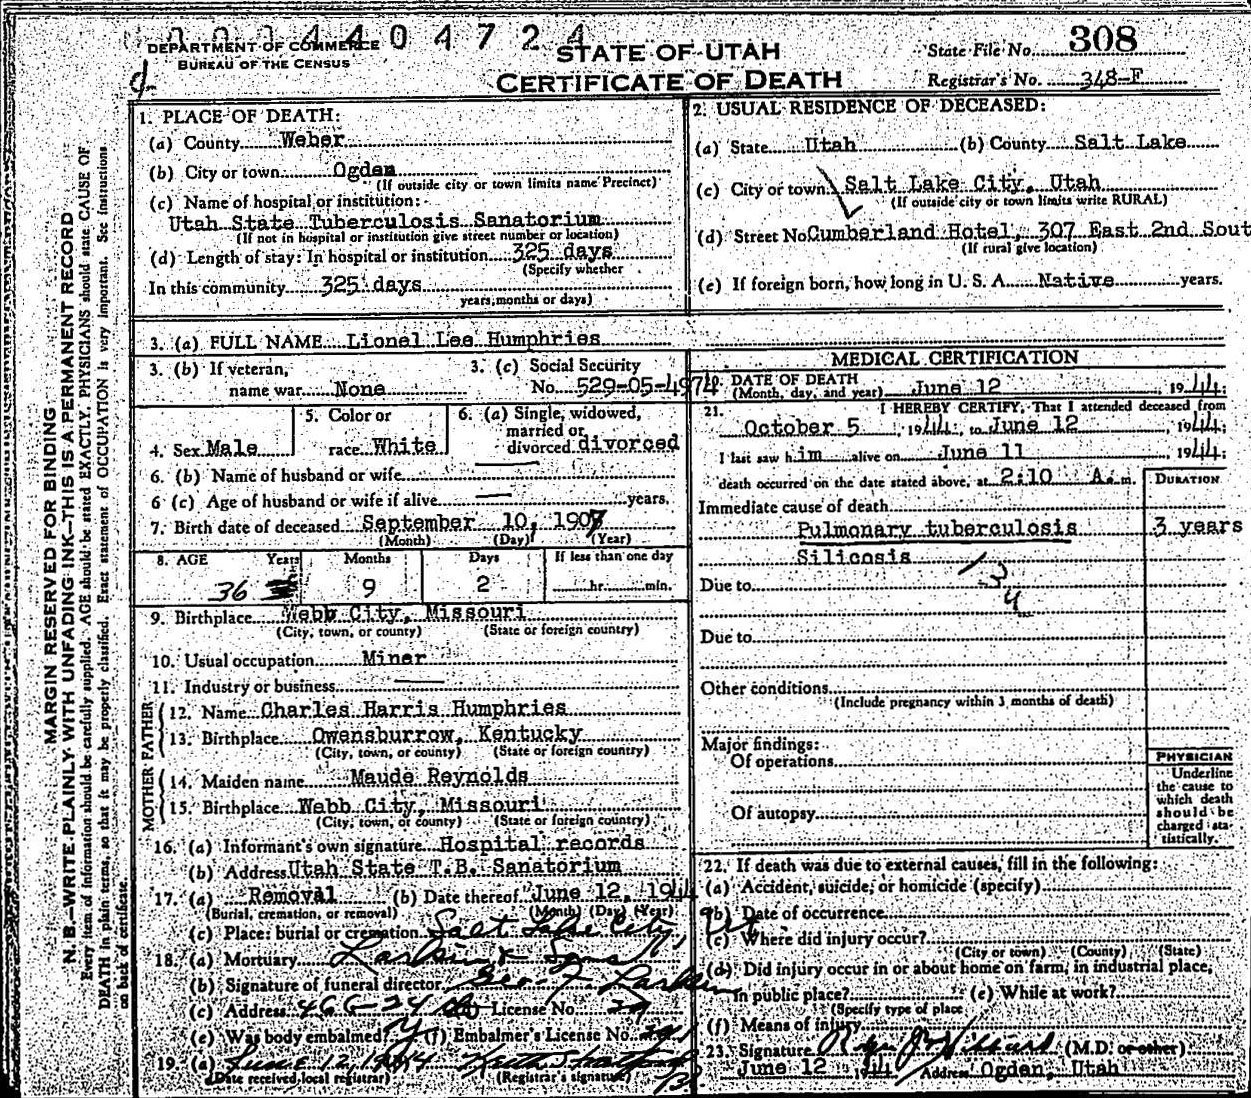 0004404724
DEPARTMENT OF COMMERCE
BUREAU OF THE CENSUS
STATE OF UTAH
CERTIFICATE OF DEATH
State File No. 308
Registrar's No. 348-F
MARGIN RESERVED FOR BINDING
N. B.—WRITE PLAINLY WITH UNFADING INK—THIS IS A PERMANENT RECORD
Every item of information should be carefully supplied. AGE should be stated EXACTLY. PHYSICIANS should state CAUSE OF
DEATH in plain terms, so that it may be properly classified. Exact statement of OCCUPATION is very important. See instructions
on back of certificate.
1. PLACE OF DEATH:
(a) County Weber
(b) City or town Ogden
(If outside city or town limits name Precinct)
(c) Name of hospital or institution:
Utah State Tuberculosis Sanatorium
(If not in hospital or institution give street number or location)
(d) Length of stay: In hospital or institution 325 days
(Specify whether
In this community 325 days
years, months or days)
2. USUAL RESIDENCE OF DECEASED:
(a) State Utah (b) County Salt Lake
(c) City or town Salt Lake City, Utah
(If outside city or town limits write RURAL)
(d) Street No Cumberland Hotel, 307 East 2nd Sout
(If rural give location)
(e) If foreign born, how long in U. S. A. Native years.
3. (a) FULL NAME Lionel Lee Humphries
3. (b) If veteran,
name war None
3. (c) Social Security
No. 529-05-4974
4. Sex Male
5. Color or
race White
6. (a) Single, widowed,
married or
divorced divorced
6. (b) Name of husband or wife
6 (c) Age of husband or wife if alive years.
7. Birth date of deceased September 10, 1907
(Month) (Day) (Year)
8. AGE Years Months Days If less than one day
36 9 2 hr. min.
9. Birthplace Webb City, Missouri
(City, town, or county) (State or foreign country)
10. Usual occupation Miner
11. Industry or business
FATHER
12. Name Charles Harris Humphries
13. Birthplace Owensburrow, Kentucky
(City, town, or county) (State or foreign country)
MOTHER
14. Maiden name Maude Reynolds
15. Birthplace Webb City, Missouri
(City, town, or county) (State or foreign country)
16. (a) Informant's own signature Hospital records
(b) Address Utah State T.B. Sanatorium
17. (a) Removal (b) Date thereof June 12, 1944
(Burial, cremation, or removal) (Month) (Day) (Year)
(c) Place: burial or cremation Salt Lake City,
18. (a) Mortuary Larkin & Sons
(b) Signature of funeral director Geo. J. Larkin
(c) Address License No.
(e) Was body embalmed? (f) Embalmer's License No.
19. (a) June 12, 1944
(Date received local registrar) (Registrar's signature)
MEDICAL CERTIFICATION
DATE OF DEATH
(Month, day, and year) June 12, 1944;
21. I HEREBY CERTIFY, That I attended deceased from
October 5, 1944, to June 12, 1944;
I last saw him alive on June 11 1944;
death occurred on the date stated above, at 2:10 A.m.
DURATION
Immediate cause of death
Pulmonary tuberculosis 3 years
Silicosis
13
4
Due to
Due to
Other conditions
(Include pregnancy within 3 months of death)
Major findings:
Of operations
Of autopsy
PHYSICIAN
Underline
the cause to
which death
should be
charged sta-
tistically.
22. If death was due to external causes, fill in the following:
(a) Accident, suicide, or homicide (specify)
(b) Date of occurrence
(c) Where did injury occur?
(City or town) (County) (State)
(d) Did injury occur in or about home on farm, in industrial place,
in public place? (e) While at work?
(Specify type of place
(f) Means of injury
23. Signature (M.D. or other)
June 12 1944 Address Ogden, Utah